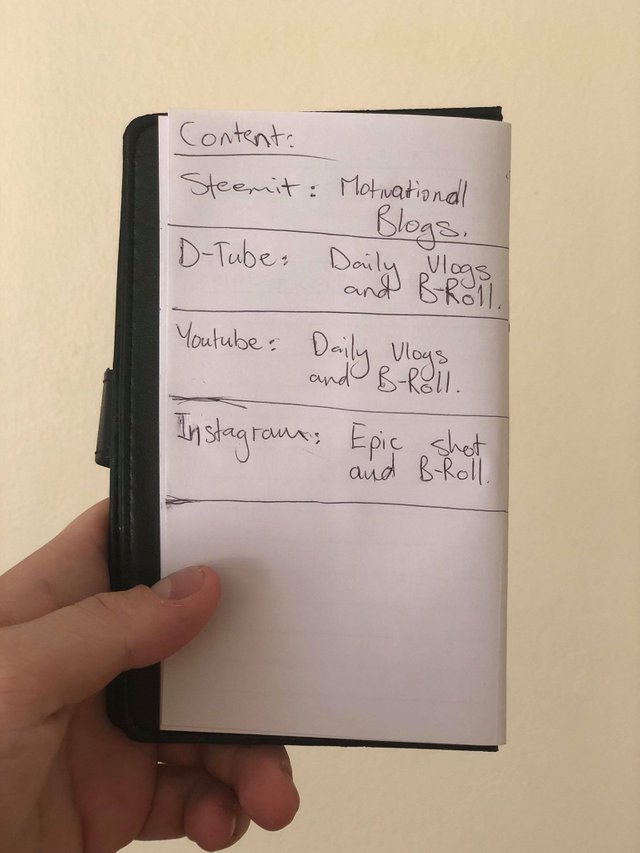 Content:
Steemit: Motivational
Blogs.
D-Tube: Daily Vlogs
and B-Roll.
Youtube: Daily Vlogs
and B-Roll.
Instagram: Epic shot
and B-Roll.